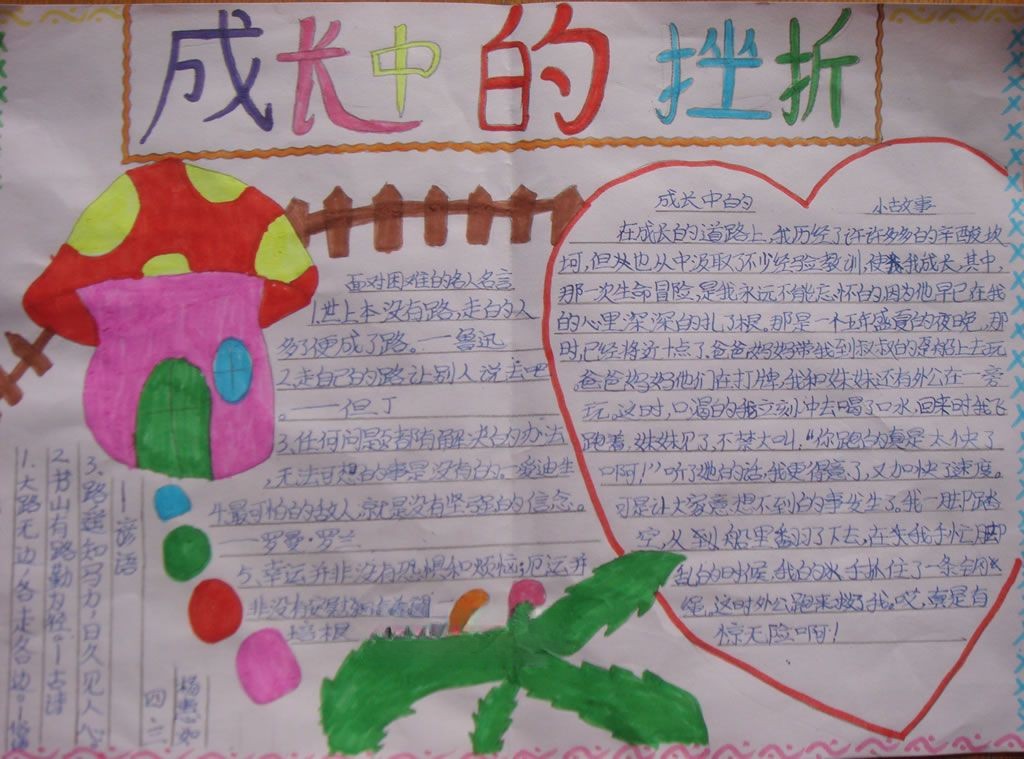 成长中的挫折
面对困难的名人名言
1.世上本没有路,走的人
多了便成了路。——鲁迅
2.走自己的路让别人说去吧
。——但丁
3.任何问题都有解决的办法
,无法可想的事是没有的。—爱迪生
4.最可怕的敌人,就是没有坚强的信念。
——罗曼·罗兰
5、幸运并非没有恐惧和烦恼;厄运并
非没有
培根
成长中的 小故事
在成长的道路上,我历经了许许多多的辛酸坎
坷,但也从中汲取了不少经验教训,使我成长,其中,
那一次生命冒险,是我永远不能忘怀的因为他早已在我
的心里深深的扎了根。那是一个五年盛夏的夜晚,那
时,已经将近十点了,爸爸妈妈带我到叔叔的上去玩
。爸爸妈妈他们在打牌,我和妹妹还有外公在一旁
玩。这时,口渴的我立刻冲去喝了口水,回来时我飞
跑着,妹妹见了,不禁大叫:“你跑的真是太快了
啊!”听了她的话,我更得意了,又加快了速度。
可是让大家意想不到的事发生了,我一脚踏
空,从到船里翻了下去,在我手忙脚
乱的时候,我的手抓住了一条
绳,这时外公跑来救了我。哎,真是有
惊无险啊!
3、路遥知马力,日久见人心
——谚语
2、书山有路勤为径。—古诗
1、大路无边,各走各边。—
四、二